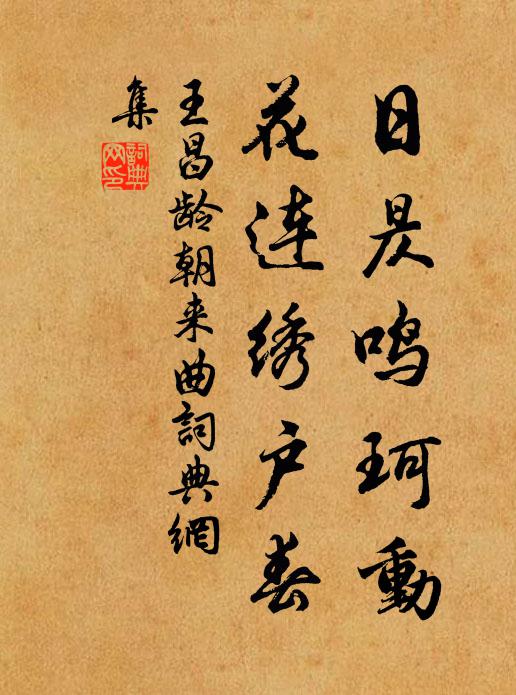 日昃鸣珂動
花连绣户春
王昌龄朝来曲詞典網
集
詞典网印